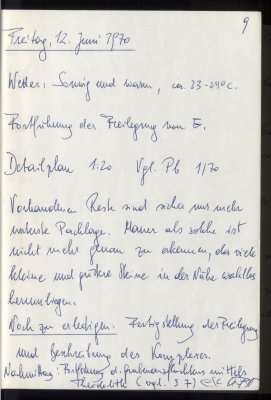 9
Freitag, 12. Juni 1970
Wetter: Sonnig und warm, ca. 23-24°C.
Fortführung der Freilegung von E.
Detailplan 1:20. Vgl. Pb 1/70
Vorhandene Reste sind sicher nur mehr
unterste Packlage. Mauer als solche ist
nicht mehr genau zu erkennen, da viele
kleine und größere Steine in der Nähe wahllos
herumliegen.
Noch zu erledigen: Fertigstellung der Freilegung
und Beschreibung des Komplexes.
Nachmittag: Fortführung d. mittels
Theodolith (vgl. S 7)